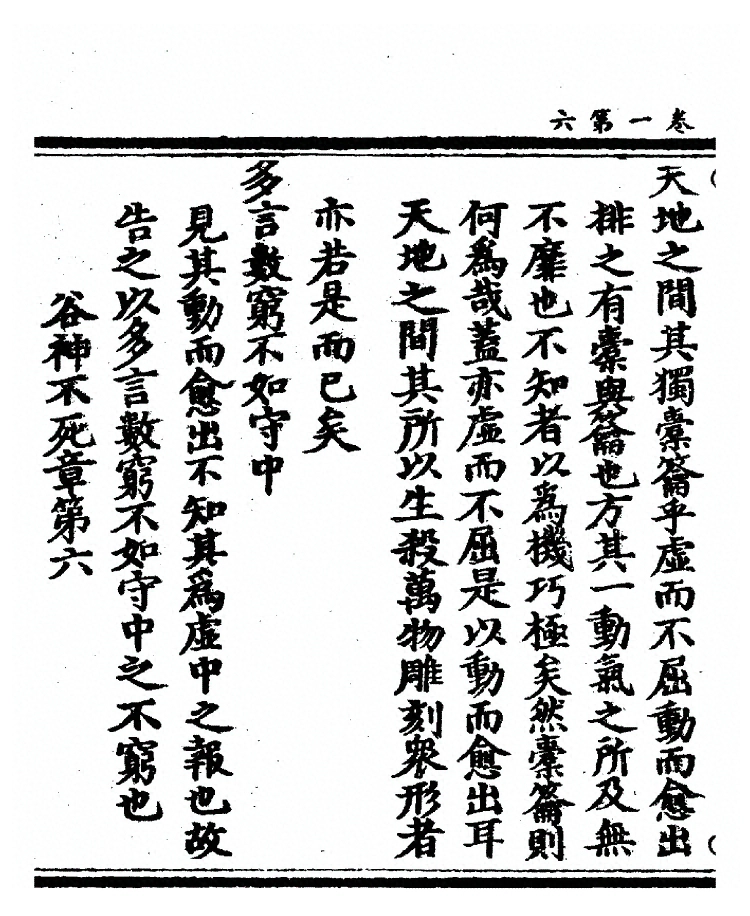 卷一第六
天地之間其獨橐籥乎虛而不屈動而愈出
排之有橐與籥也方其一動氣之所及無
不靡也不知者以為機巧極矣然橐籥則
何為哉蓋亦虛而不屈是以動而愈出耳
天地之間其所以生殺萬物雕刻衆形者
亦若是而已矣
多言數窮不如守中
見其動而愈出不知其為虛中之報也故
告之以多言數窮不如守中之不窮也
谷神不死章第六